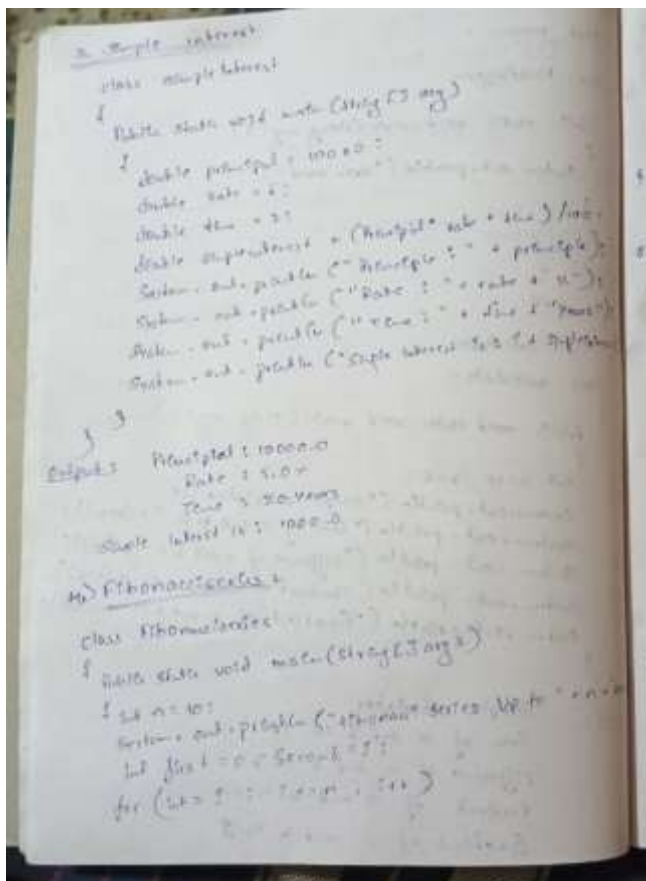 3. Simple interest
class Simple Interest
{
Public static void main (String [] arg)
{
double principal = 10000;
double rate = 5;
double time = 2;
double simpleinterest = (Principal * rate * time) / 100;
System.out.println ("Principle : " + principle);
System.out.println ("Rate : " + rate +
System.out.println ("Time : " + time + "years");
System.out.println ("Simple interest is :
}
}
Output : Principal : 10000.0
Rate : 5.0 %
Time : 2.0 years
Simple interest is : 1000.0
4.) Fibonacciseries :
class Fibonacciseries
{ Public static void main (String [] args)
{ int n = 10;
System.out.println ( series up to " + n +
int first = 0, second = 1;
for (int = 1 ; i <= n ; i++)